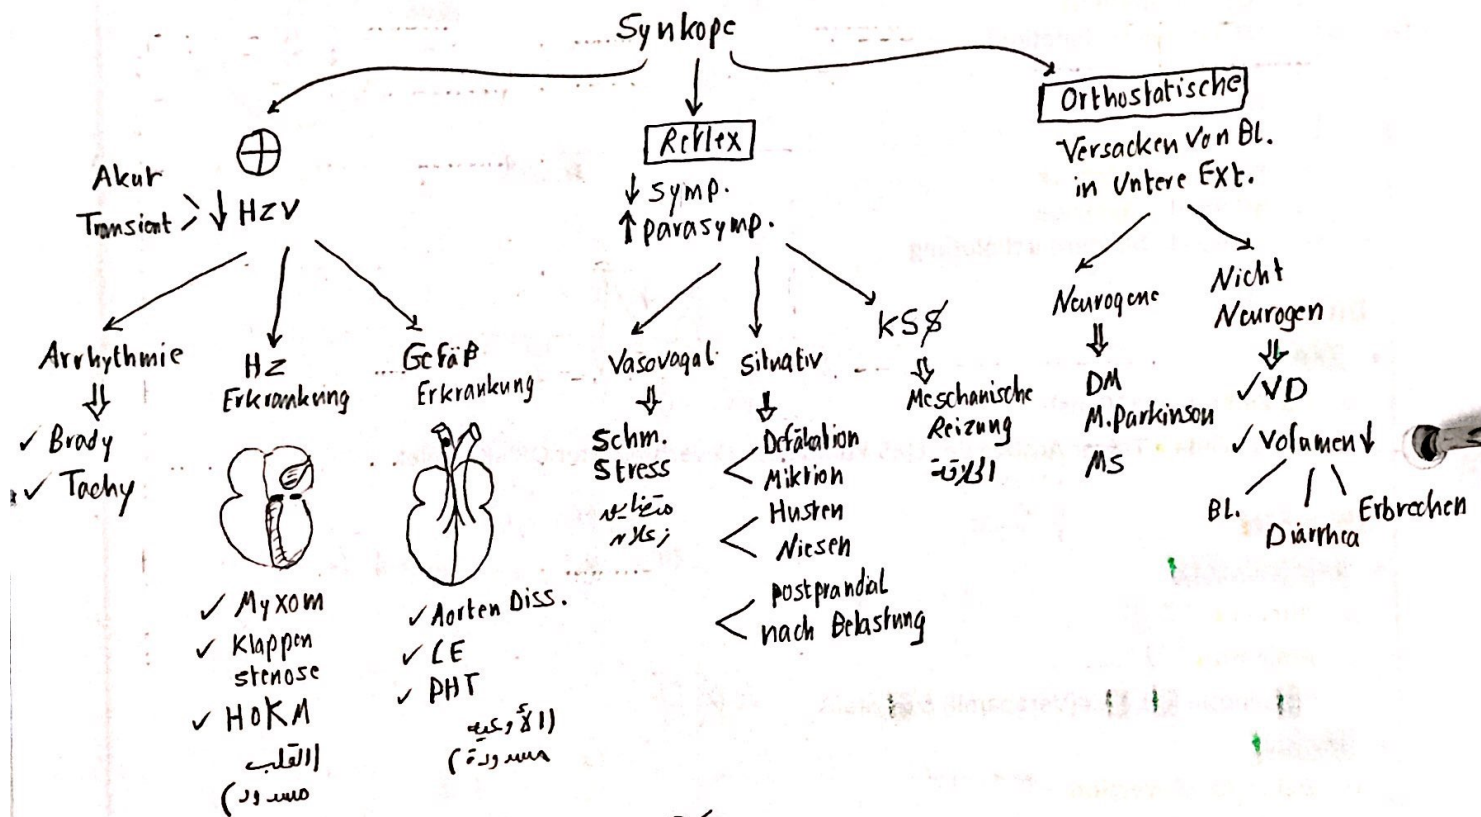 Synkope
Akut
Transient
↓ HZV
Arrhythmie
✓ Brady
✓ Tachy
HZ
Erkrankung
✓ Myxom
✓ Klappen
stenose
✓ HOKM
(القلب
مسدود)
Gefäß
Erkrankung
✓ Aorten Diss.
✓ LE
✓ PHT
(الأوعيه
مسدودة)
Reflex
↓ symp.
↑ parasymp.
Vasovagal
Schm.
Stress
Situativ
Defäkation
Miktion
Husten
Niesen
postprandial
nach Belastung
KSS
Meschanische
Reizung
الحلاقة
Orthostatische
Versacken von Bl.
in Untere Ext.
Neurogene
DM
M.Parkinson
MS
Nicht
Neurogen
✓ VD
✓ Volumen↓
Bl.
Diarrhea
Erbrechen